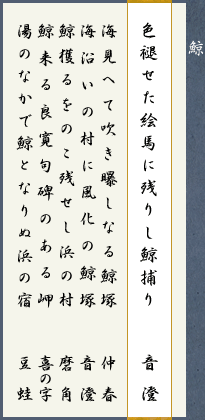 鯨
色褪せた絵馬に残りし鯨捕り 音澄
海見へて吹き曝しなる鯨塚 仲春
海沿いの村に風化の鯨塚 音澄
鯨獲るをのこ残せし浜の村 磨角
鯨来る良寛句碑のある岬 喜の字
湯のなかで鯨となりぬ浜の宿 豆蛙